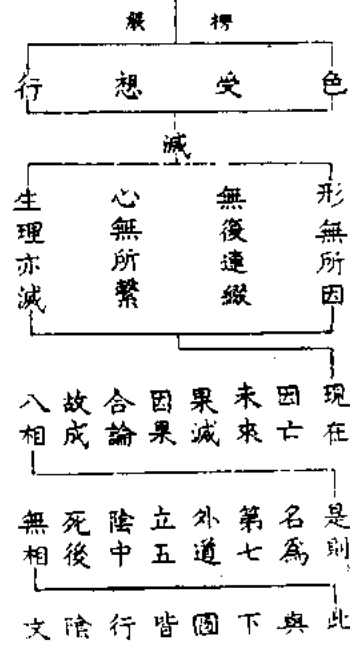 楞嚴
色
受
想
行
滅
形無所因
無復連綴
心無所繫
生理亦滅
現在
因亡
未來
果滅
因果
合論
故成
八相
是則
名為
第七
外道
立五
陰中
死後
無相
此
與
下
圖
皆
行
陰
文